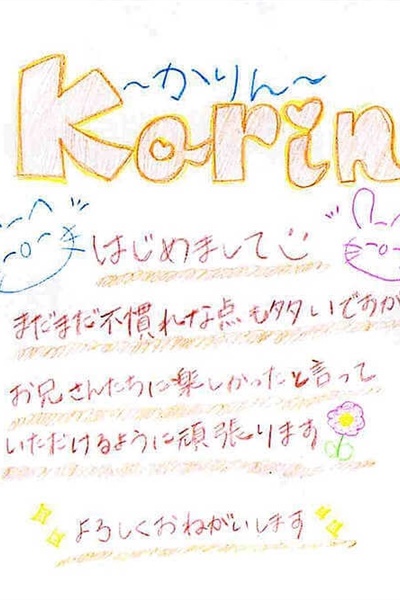 ～かりん～
Korin
はじめまして
まだまだ不慣れな点も多いですが
お兄さんたちに楽しかったと言って
いただけるように頑張ります
よろしくおねがいします